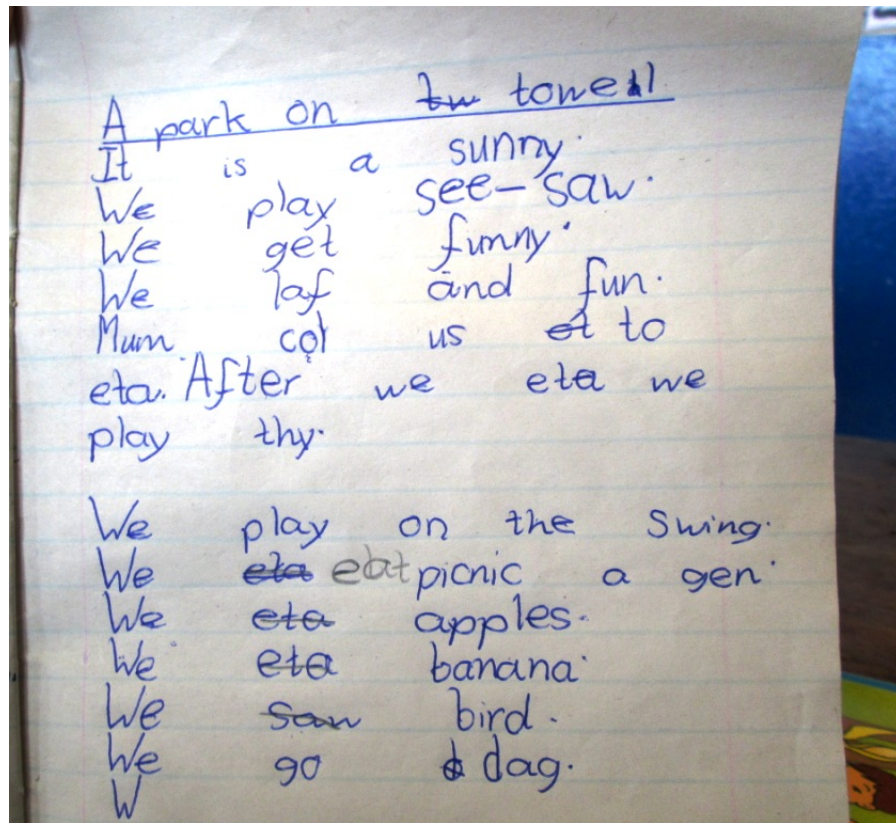 A park on tw towell
It is a sunny.
We play see-saw.
We get funny.
We laf and fun.
Mum col us et to
eta. After we eta we
play thy.
We play on the Swing.
We eta eat picnic a gen.
We eta apples.
We eta banana.
We saw bird.
We go dag.
W